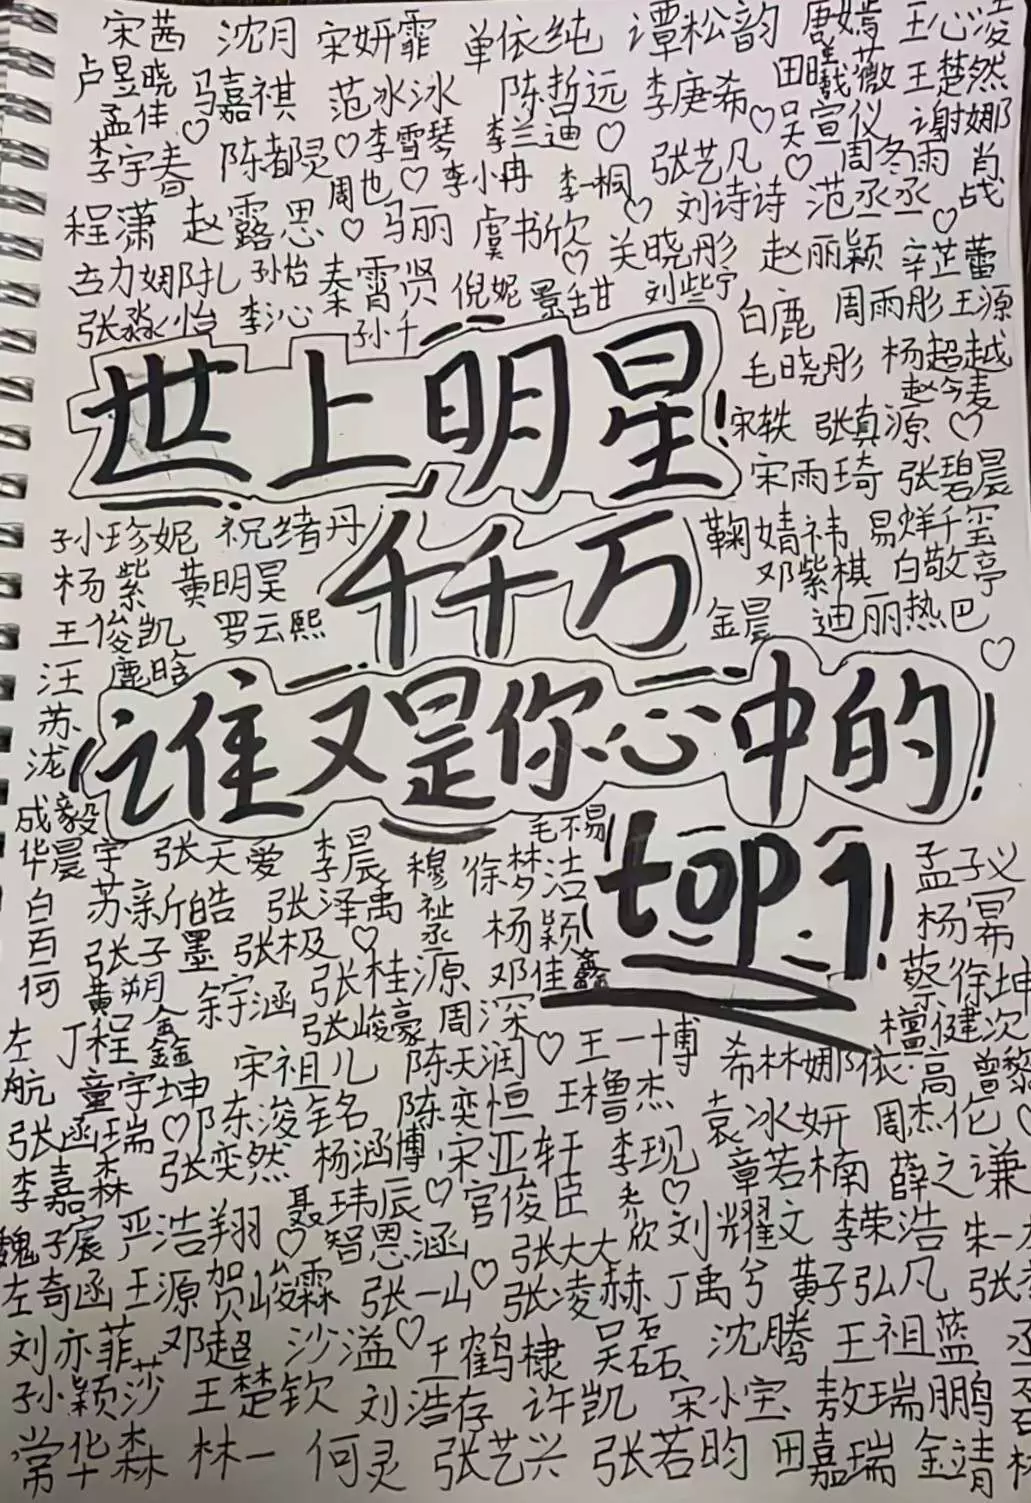 宋茜 沈月 宋妍霏 单依纯 谭松韵 唐嫣 王心凌
卢昱晓 马嘉祺 范冰冰 陈哲远 李庚希 田曦薇 王楚然
孟佳 李雪琴 李兰迪 吴宣仪 谢娜
李宇春 陈都灵 张艺凡 周冬雨 肖战
周也 李小冉 李一桐
程潇 赵露思 马丽 虞书欣 刘诗诗 范丞丞
关晓彤 赵丽颖 辛芷蕾
古力娜扎 孙怡 秦霄贤 倪妮 景甜 刘些宁
张淼怡 李沁 孙千 白鹿 周雨彤 王源
世上明星!
毛晓彤 杨超越
赵今麦
宋轶 张真源
宋雨琦 张碧晨
千千万
孙珍妮 祝绪丹 鞠婧祎 易烊千玺
杨紫 黄明昊 邓紫棋 白敬亭
王俊凯 罗云熙 金晨 迪丽热巴
汪苏泷 鹿晗
谁又是你心中的!
成毅 毛不易
top1!
华晨宇 张天爱 李晨 穆祉丞 徐梦洁 孟子义
白百何 苏新皓 张泽禹 杨颖 杨幂
张子墨 张极 邓佳鑫 蔡徐坤
黄朔 余宇涵 张桂源
左航 丁程鑫 张峻豪 周深 檀健次
童宇坤 宋祖儿 陈天润 王一博 希林娜依·高 曾黎
张函瑞 陈浚铭 陈奕恒 王橹杰 袁冰妍 周杰伦
李嘉森 张奕然 杨涵博 宋亚轩 李现 章若楠 薛之谦
魏子宸 严浩翔 聂玮辰 官俊臣 刘耀文 李荣浩
智恩涵 张大大
左奇函 王源 贺峻霖 张一山 张凌赫 丁禹兮 黄子弘凡
刘亦菲 邓超 沙溢 王鹤棣 吴磊 沈腾 王祖蓝
孙颖莎 王楚钦 刘浩存 许凯 宋小宝 敖瑞鹏
常华森 林一 何炅 张艺兴 张若昀 田嘉瑞 金靖